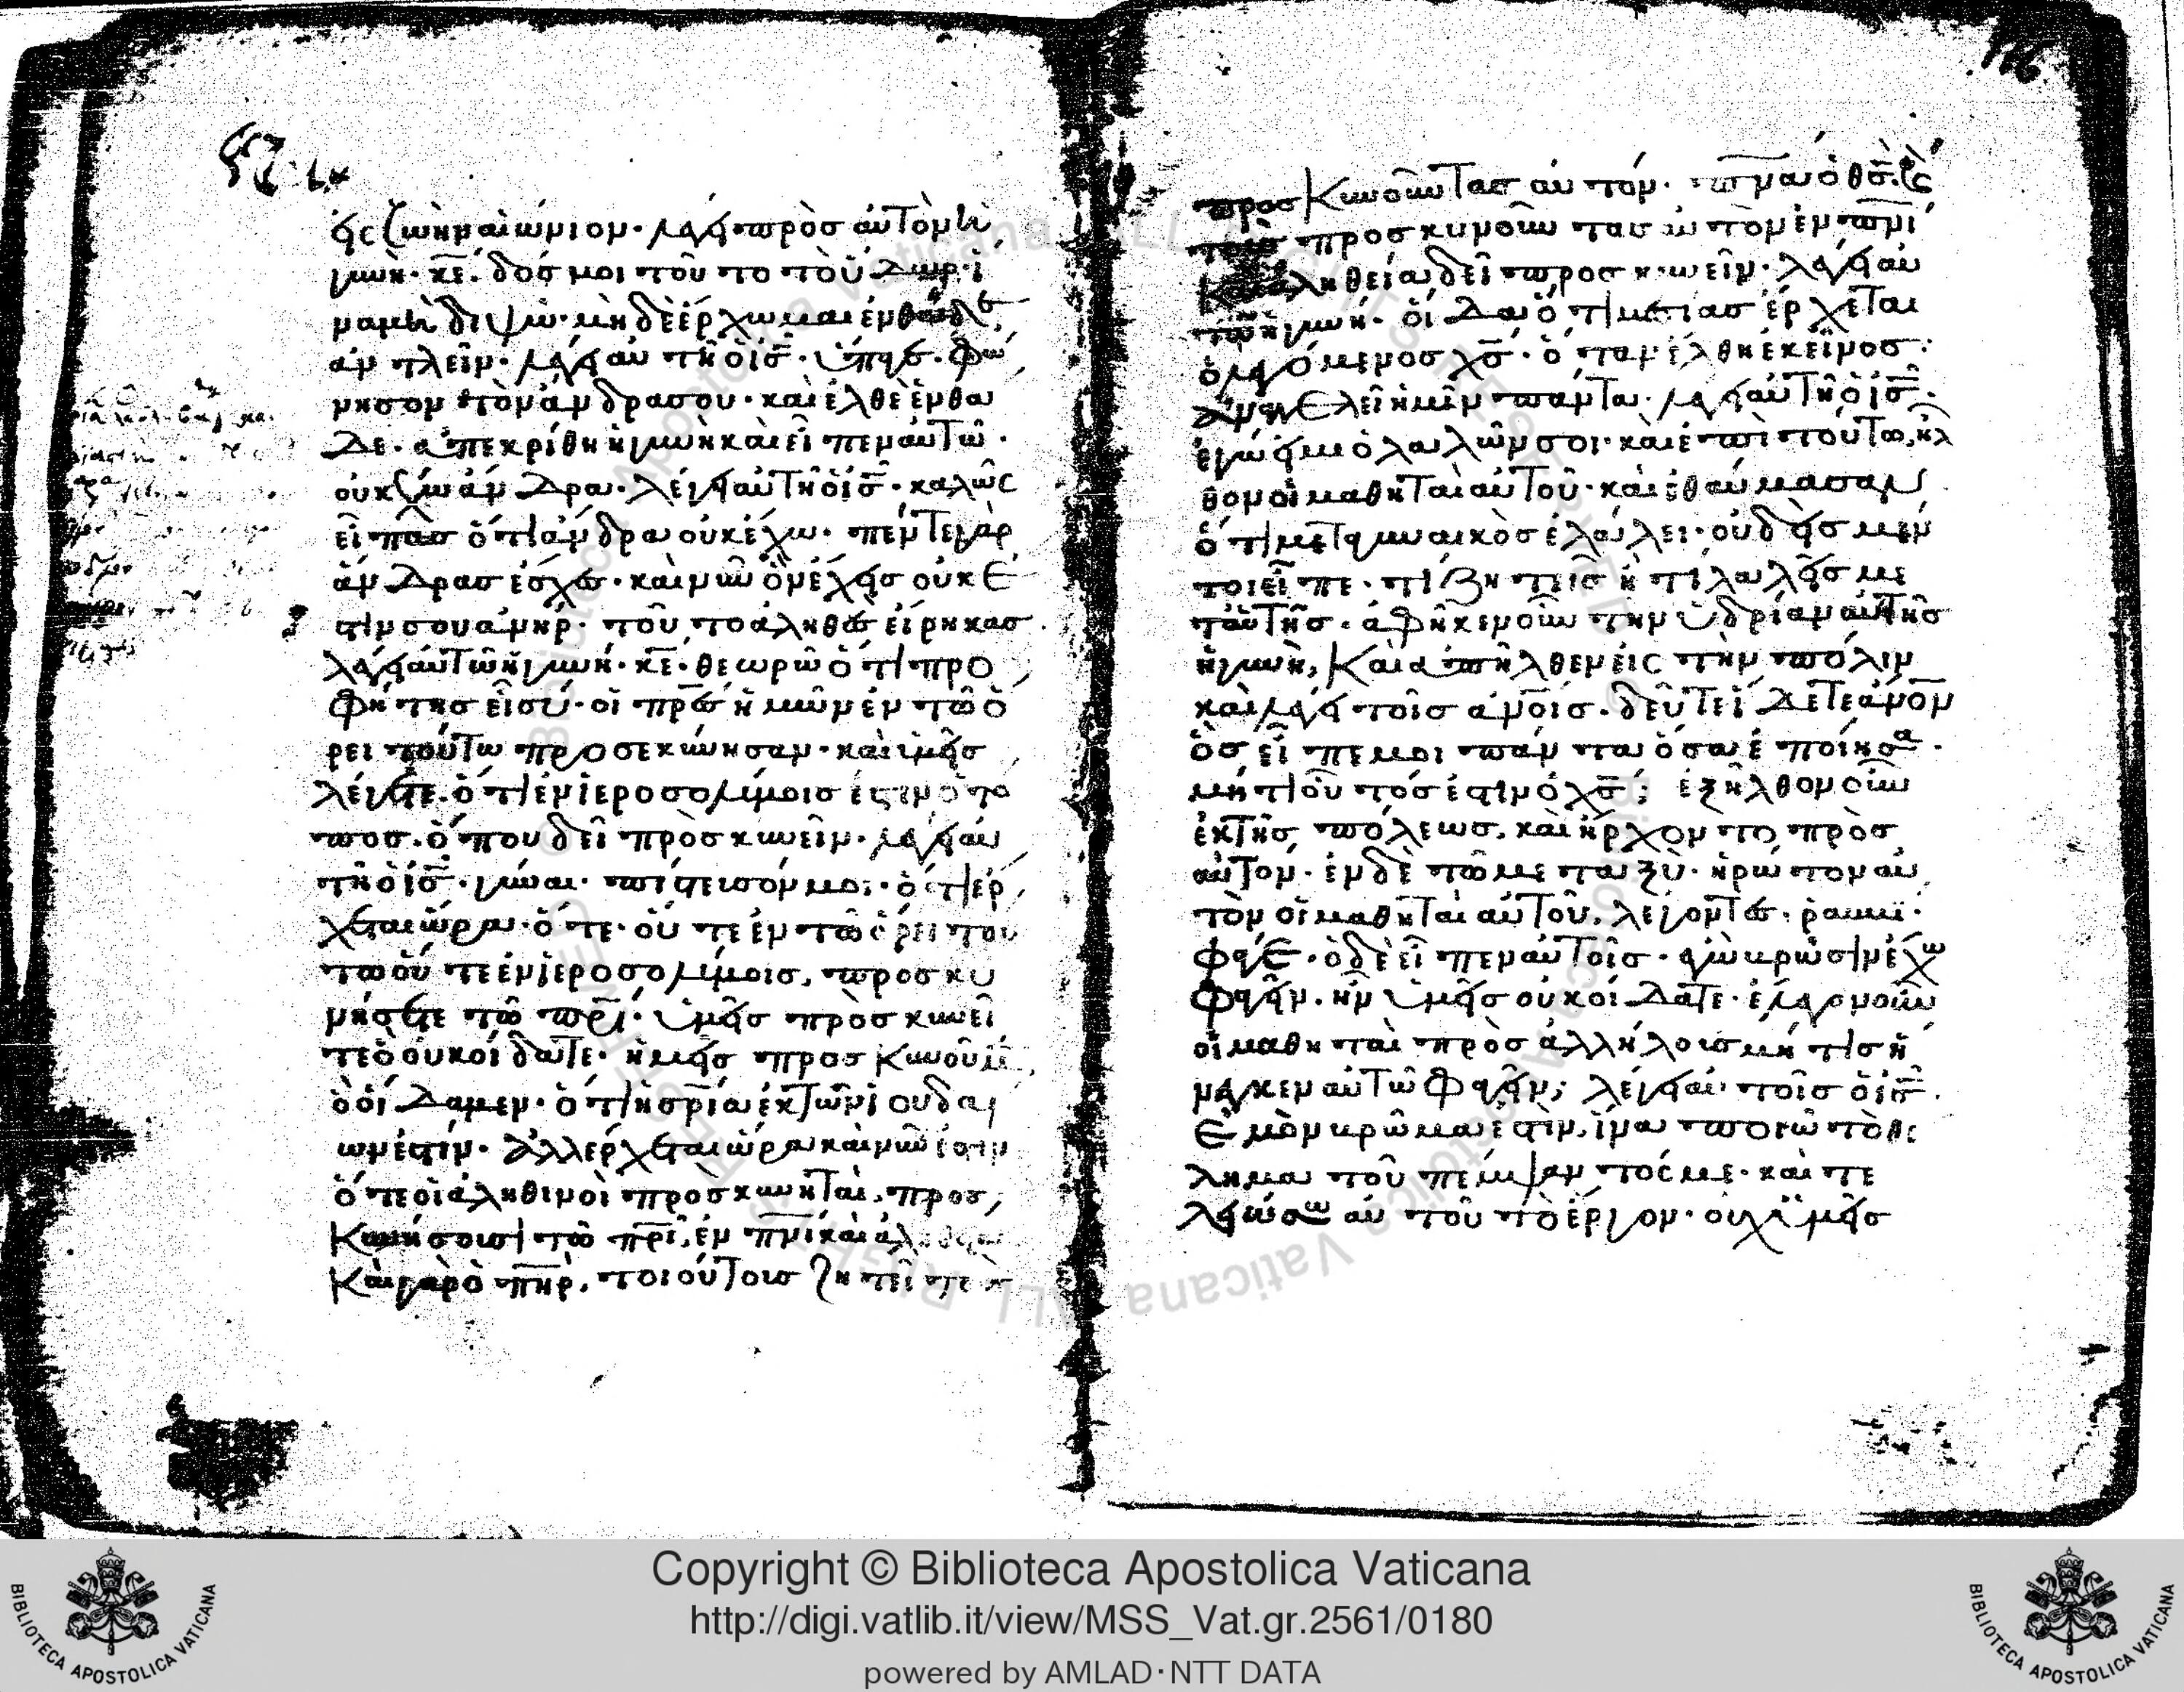 εἰς ζωὴν αἰώνιον· λέγει πρὸς αὐτὸν ἡ
γυνή· κ̅ε̅. δός μοι τοῦτο τὸ ὕδωρ· ἵ
να μὴ διψῶ· μὴ δὲ ἔρχωμαι ἐνθάδε
ἀντλεῖν· λέγει αὐτῆ ὁ ι̅ς̅· ὕπαγε· φώ
νησον τὸν ἄνδρα σου· καὶ ἐλθὲ ἐνθά
δε· ἀπεκρίθη ἡ γυνὴ καὶ εἶπεν αὐτῶ·
οὐκ ἔχω ἄνδρα· λέγει αὐτῆ ὁ ι̅ς̅· καλῶς
εἶπας ὅτι ἄνδρα οὐκ ἔχω· πέντε γὰρ
ἄνδρας ἔσχες· καὶ νῦν ὃν ἔχεις οὐκ ἔ
στιν σου ἀνήρ· τοῦτο ἀληθὲς εἴρηκας·
λέγει αὐτῶ ἡ γυνή· κ̅ε̅· θεωρῶ ὅτι προ
φήτης εἶ σύ· οἱ π̅ρ̅ε̅ς̅ ἡμῶν ἐν τῶ ὄ
ρει τούτω προσεκύνησαν· καὶ ὑμεῖς
λέγετε· ὅτι ἐν ἱεροσολύμοις ἐστὶν ὁ τό
πος· ὅπου δεῖ προσκυνεῖν· λέγει αὐ
τῆ ὁ ι̅ς̅· γύναι· πίστευσόν μοι· ὅτι ἔρ
χεται ὥρα· ὅτε· οὔτε ἐν τῶ ὄρει τού
τω οὔτε ἐν ἱεροσολύμοις, προσκυ
νήσετε τῶ π̅ρ̅ι̅· ὑμεῖς προσκυνεῖ
τε ὃ οὐκ οἴδατε· ἡμεῖς προσκυνοῦμεν
ὃ οἴδαμεν· ὅτι ἡ σ̅ρ̅ι̅α ἐκ τῶν ἰουδαί
ων ἐστίν· ἀλλ' ἔρχεται ὥρα καὶ νῦν ἐστιν
ὅτε οἱ ἀληθινοὶ προσκυνηταὶ, προσ
κυνήσουσι τῶ π̅ρ̅ι̅, ἐν π̅ν̅ι̅ καὶ ἀληθεία
καὶ γὰρ ὁ π̅η̅ρ̅, τοιούτους ζητεῖ τοὺς
προσκυνοῦντας αὐτόν· π̅ν̅α̅ ὁ θ̅ς̅· καὶ
τοὺς προσκυνοῦντας αὐτὸν ἐν π̅ν̅ι̅
καὶ ἀληθεία δεῖ προσκυνεῖν· λέγει αὐ
τῶ ἡ γυνή· οἶδα ὅτι μεσίας ἔρχεται
ὁ λεγόμενος χ̅ς̅· ὅταν ἔλθη ἐκεῖνος·
ἀναγγελεῖ ἡμῖν πάντα· λέγει αὐτῆ ὁ ι̅ς̅·
ἐγώ εἰμι ὁ λαλῶν σοι· καὶ ἐπὶ τούτω, ἦλ
θον οἱ μαθηταὶ αὐτοῦ· καὶ ἐθαύμασαν
ὅτι μετὰ γυναικὸς ἐλάλει· οὐδεὶς μέν
τοι εἶπε· τί ζητεῖς ἢ τί λαλεῖς με
τ' αὐτῆς· ἀφῆκεν οὖν τὴν ὑδρίαν αὐτῆς
ἡ γυνὴ, καὶ ἀπῆλθεν εἰς τὴν πόλιν
καὶ λέγει τοῖς α̅ν̅ο̅ι̅ς̅· δεῦτε ἴδετε α̅ν̅ο̅ν̅
ὃς εἶπέ μοι πάντα ὅσα ἐποίησα·
μήτι οὗτός ἐστιν ὁ χ̅ς̅; ἐξῆλθον οὖν
ἐκ τῆς πόλεως, καὶ ἤρχοντο πρὸς
αὐτόν· ἐν δὲ τῶ μεταξὺ· ἠρώτον αὐ
τὸν οἱ μαθηταὶ αὐτοῦ, λέγοντες· ῥαββί·
φάγε· ὁ δὲ εἶπεν αὐτοῖς· ἐγὼ βρῶσιν ἔχω
φαγεῖν· ἣν ὑμεῖς οὐκ οἴδατε· ἔλεγον οὖν
οἱ μαθηταὶ πρὸς ἀλλήλους μή τις ἤ
νεγκεν αὐτῶ φαγεῖν; λέγει αὐτοῖς ὁ ι̅ς̅·
ἐμὸν βρῶμα ἐστὶν, ἵνα ποιῶ τὸ θέ
λημα τοῦ πέμψαντός με· καὶ τε
λειώσω αὐτοῦ τὸ ἔργον· οὐχ ὑμεῖς
Copyright © Biblioteca Apostolica Vaticana
http://digi.vatlib.it/view/MSS_Vat.gr.2561/0180
powered by AMLAD·NTT DATA
BIBLIOTECA APOSTOLICA VATICANA
BIBLIOTECA APOSTOLICA VATICANA